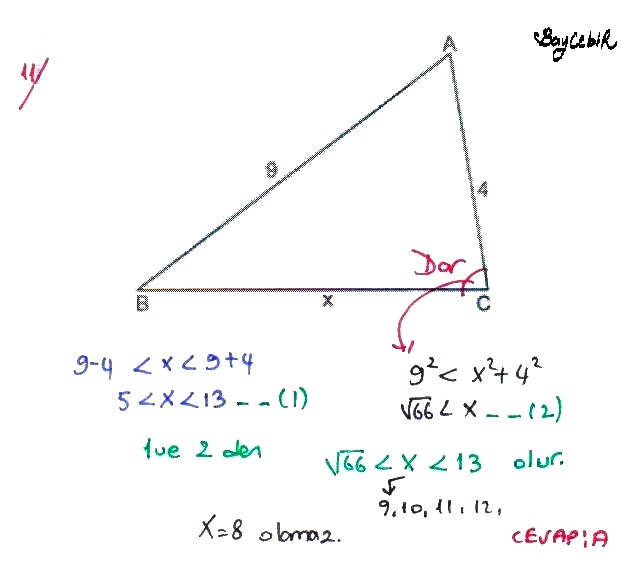 BayCebiR
11/
A
9
4
Dar
B
x
C
9-4 < x < 9+4
5 < x < 13 _ _ (1)
9² < x² + 4²
√66 < x _ _ (2)
1 ve 2 den
√66 < x < 13 olur.
9, 10, 11, 12,
X=8 olamaz.
CEVAP: A